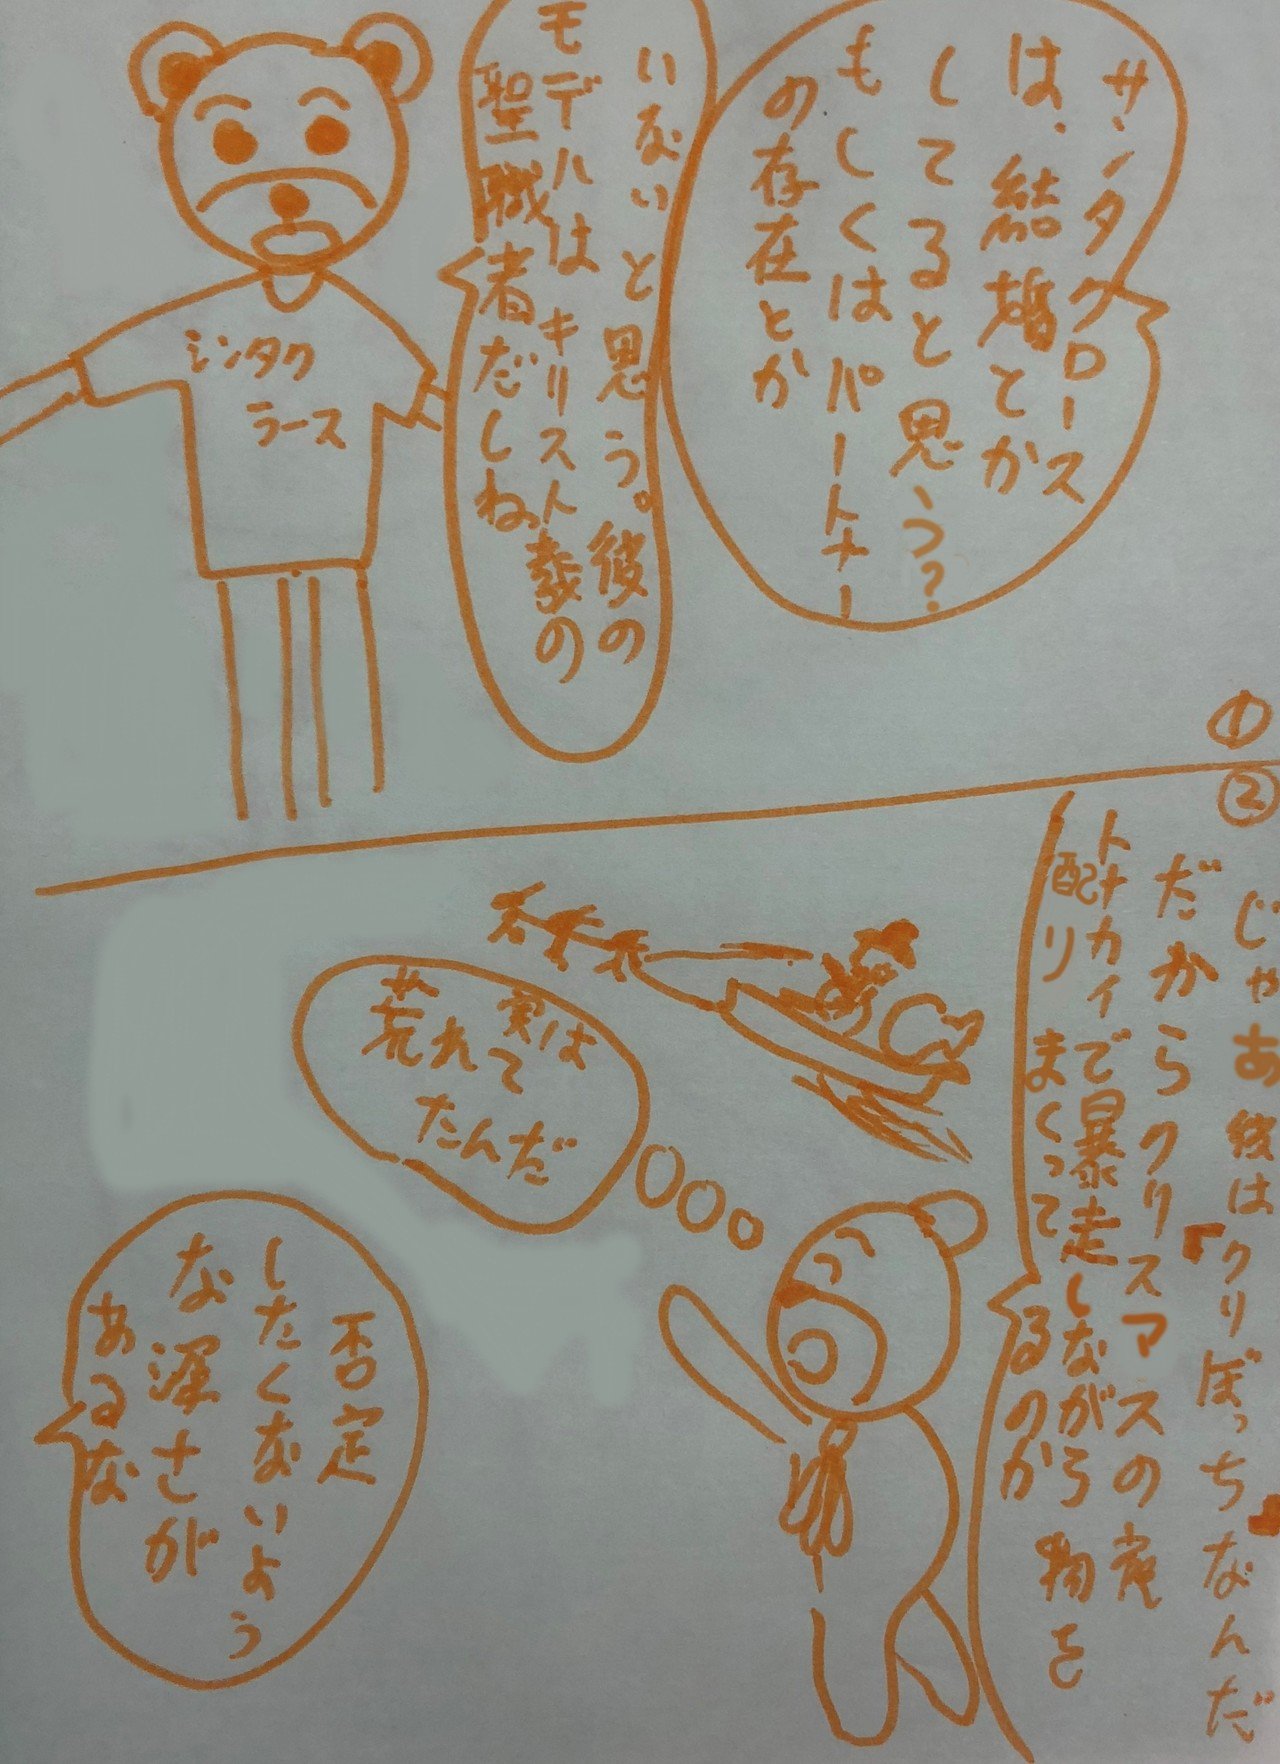 サンタクロース
は、結婚とか
してると思う?
もしくはパートナー
の存在とか
いないと思う。彼の
モデルはキリスト教の
聖職者だしね
シンタク
ラース
①
②
じゃあ彼は「クリぼっち」なんだ
だからクリスマスの夜
トナカイで暴走しながら物を
配りまくってるのか
実は
荒れて
たんだ
否定
したくないよう
な深さが
あるな